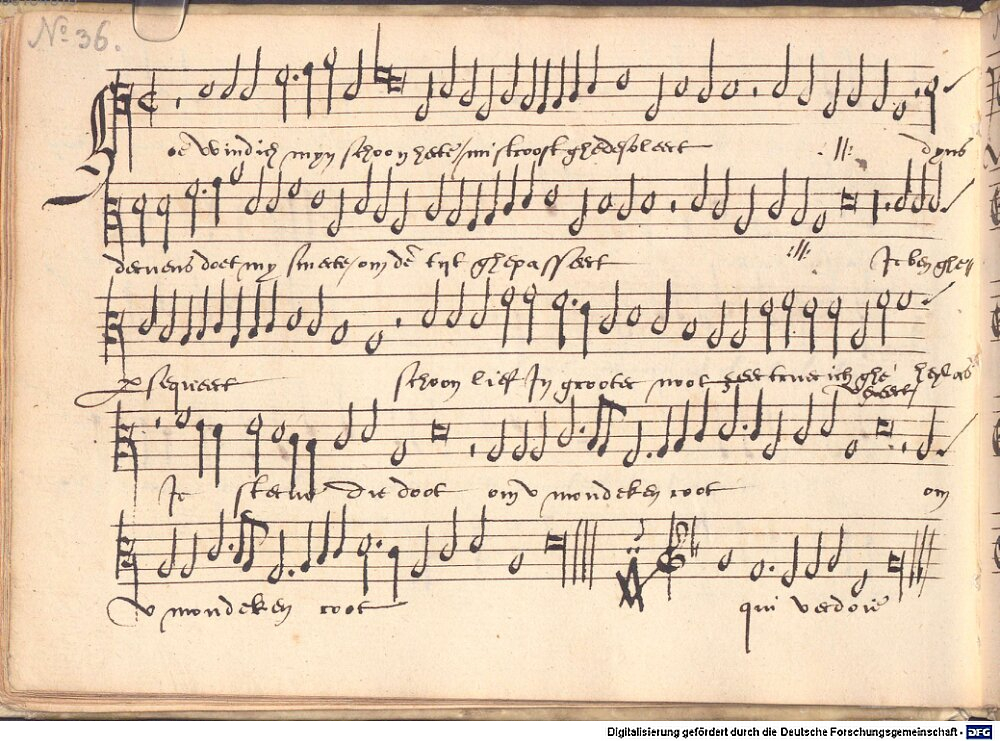 No 36.
oe vvindich myn schoon herte / mistroost ghedesoleert :||: dyns
dervens doet my smerte / om dē tyt ghepasseert :||: Ic ben ghe
psequeert schoon lief In grooter noot zeer truer ich ghe helas
vseert /
Ic sterve die doot om v mondeken root om
v mondeken root qui verdoie
Digitalisierung gefördert durch die Deutsche Forschungsgemeinschaft - DFG